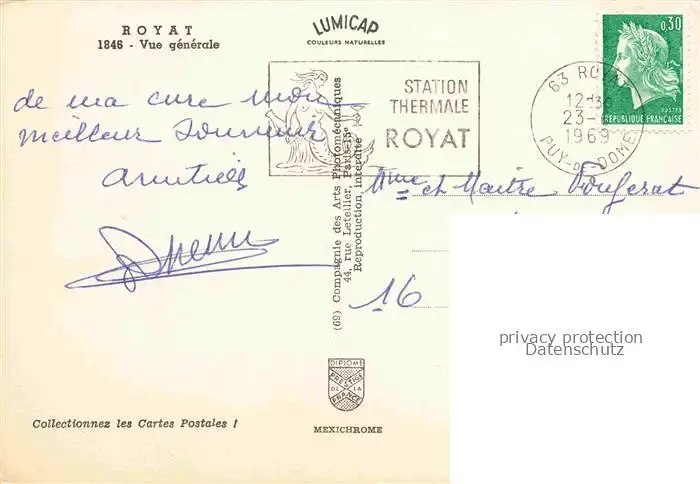 ROYAT
1846 - Vue générale
LUMICAP
COULEURS NATURELLES
0,30
POSTES
RÉPUBLIQUE FRANÇAISE
STATION
THERMALE
ROYAT
63 ROYAT
12H30
23-
1969
PUY-DE-DOME
de ma cure mon
meilleur souvenir
amitiés
Mme et Maître
16
(69) Compagnie des Arts Photomécaniques
44, rue Letellier, Paris-15e
Reproduction interdite
privacy protection
Datenschutz
DIPLOME
PRESTIGE
DE LA
FRANCE
Collectionnez les Cartes Postales !
MEXICHROME